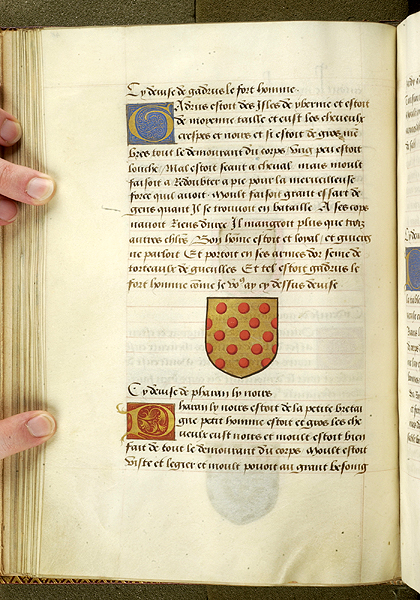 Cy devise de gadrus le fort homme.
Gadrus estoit des Isles de yberme et estoit
de moyenne taille et eust les cheveulx
crespes et noirs et si estoit de gros mem
bres tout le demourant du corps Ung peu estoit
louche Mal estoit seant a cheval mais moult
faisoit a Redoubter a pie pour la merveilleuse
force quil avoit Moult faisoit grant essart de
gens quant Il se trouvoit en bataille A ses cops
navoit Riens duree Il mangoit plus que trois
autres chlrs Bon home estoit et loyal et gueres
ne parloit Et portoit en ses armes dor seme de
torteaulx de gueulles Et tel estoit gadrus le
fort homme come je vous ay cy dessus devise
Cy devise de pharan ly noirs
Pharan ly noirs estoit de la petite bretai
gne petit homme estoit et gros les che
veulx eust noirs et moult estoit bien
fait de tout le demourant du corps Moult estoit
viste et legier et moult povoit au grant besoing